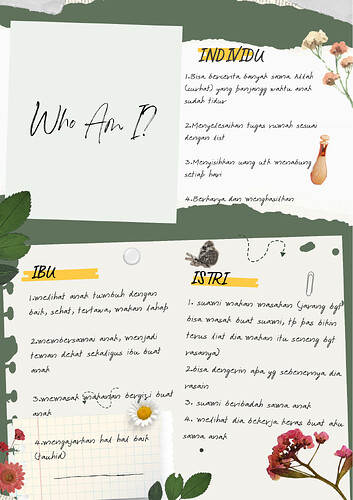 Who Am I?
INDIVIDU
1.Bisa bercerita banyak sama Allah
(curhat) yang panjangg waktu anak
sudah tidur
2.Menyelesaikan tugas rumah sesuai
dengan list
3.Menyisihkan uang utk menabung
setiap hari
4.Berkarya dan menghasilkan
IBU
1.melihat anak tumbuh dengan
baik, sehat, tertawa, makan lahap
2.membersamai anak, menjadi
teman dekat sekaligus ibu buat
anak
3.memasak makanan bergizi buat
anak
4.mengajarkan hal hal baik
(tauhid)
ISTRI
1. suami makan masakan (jarang bgt
bisa masak buat suami, tp pas bikin
terus liat dia makan itu seneng bgt
rasanya)
2.bisa dengerin apa yg sebenernya dia
rasain
3. suami beribadah sama anak
4. melihat dia bekerja keras buat aku
sama anak